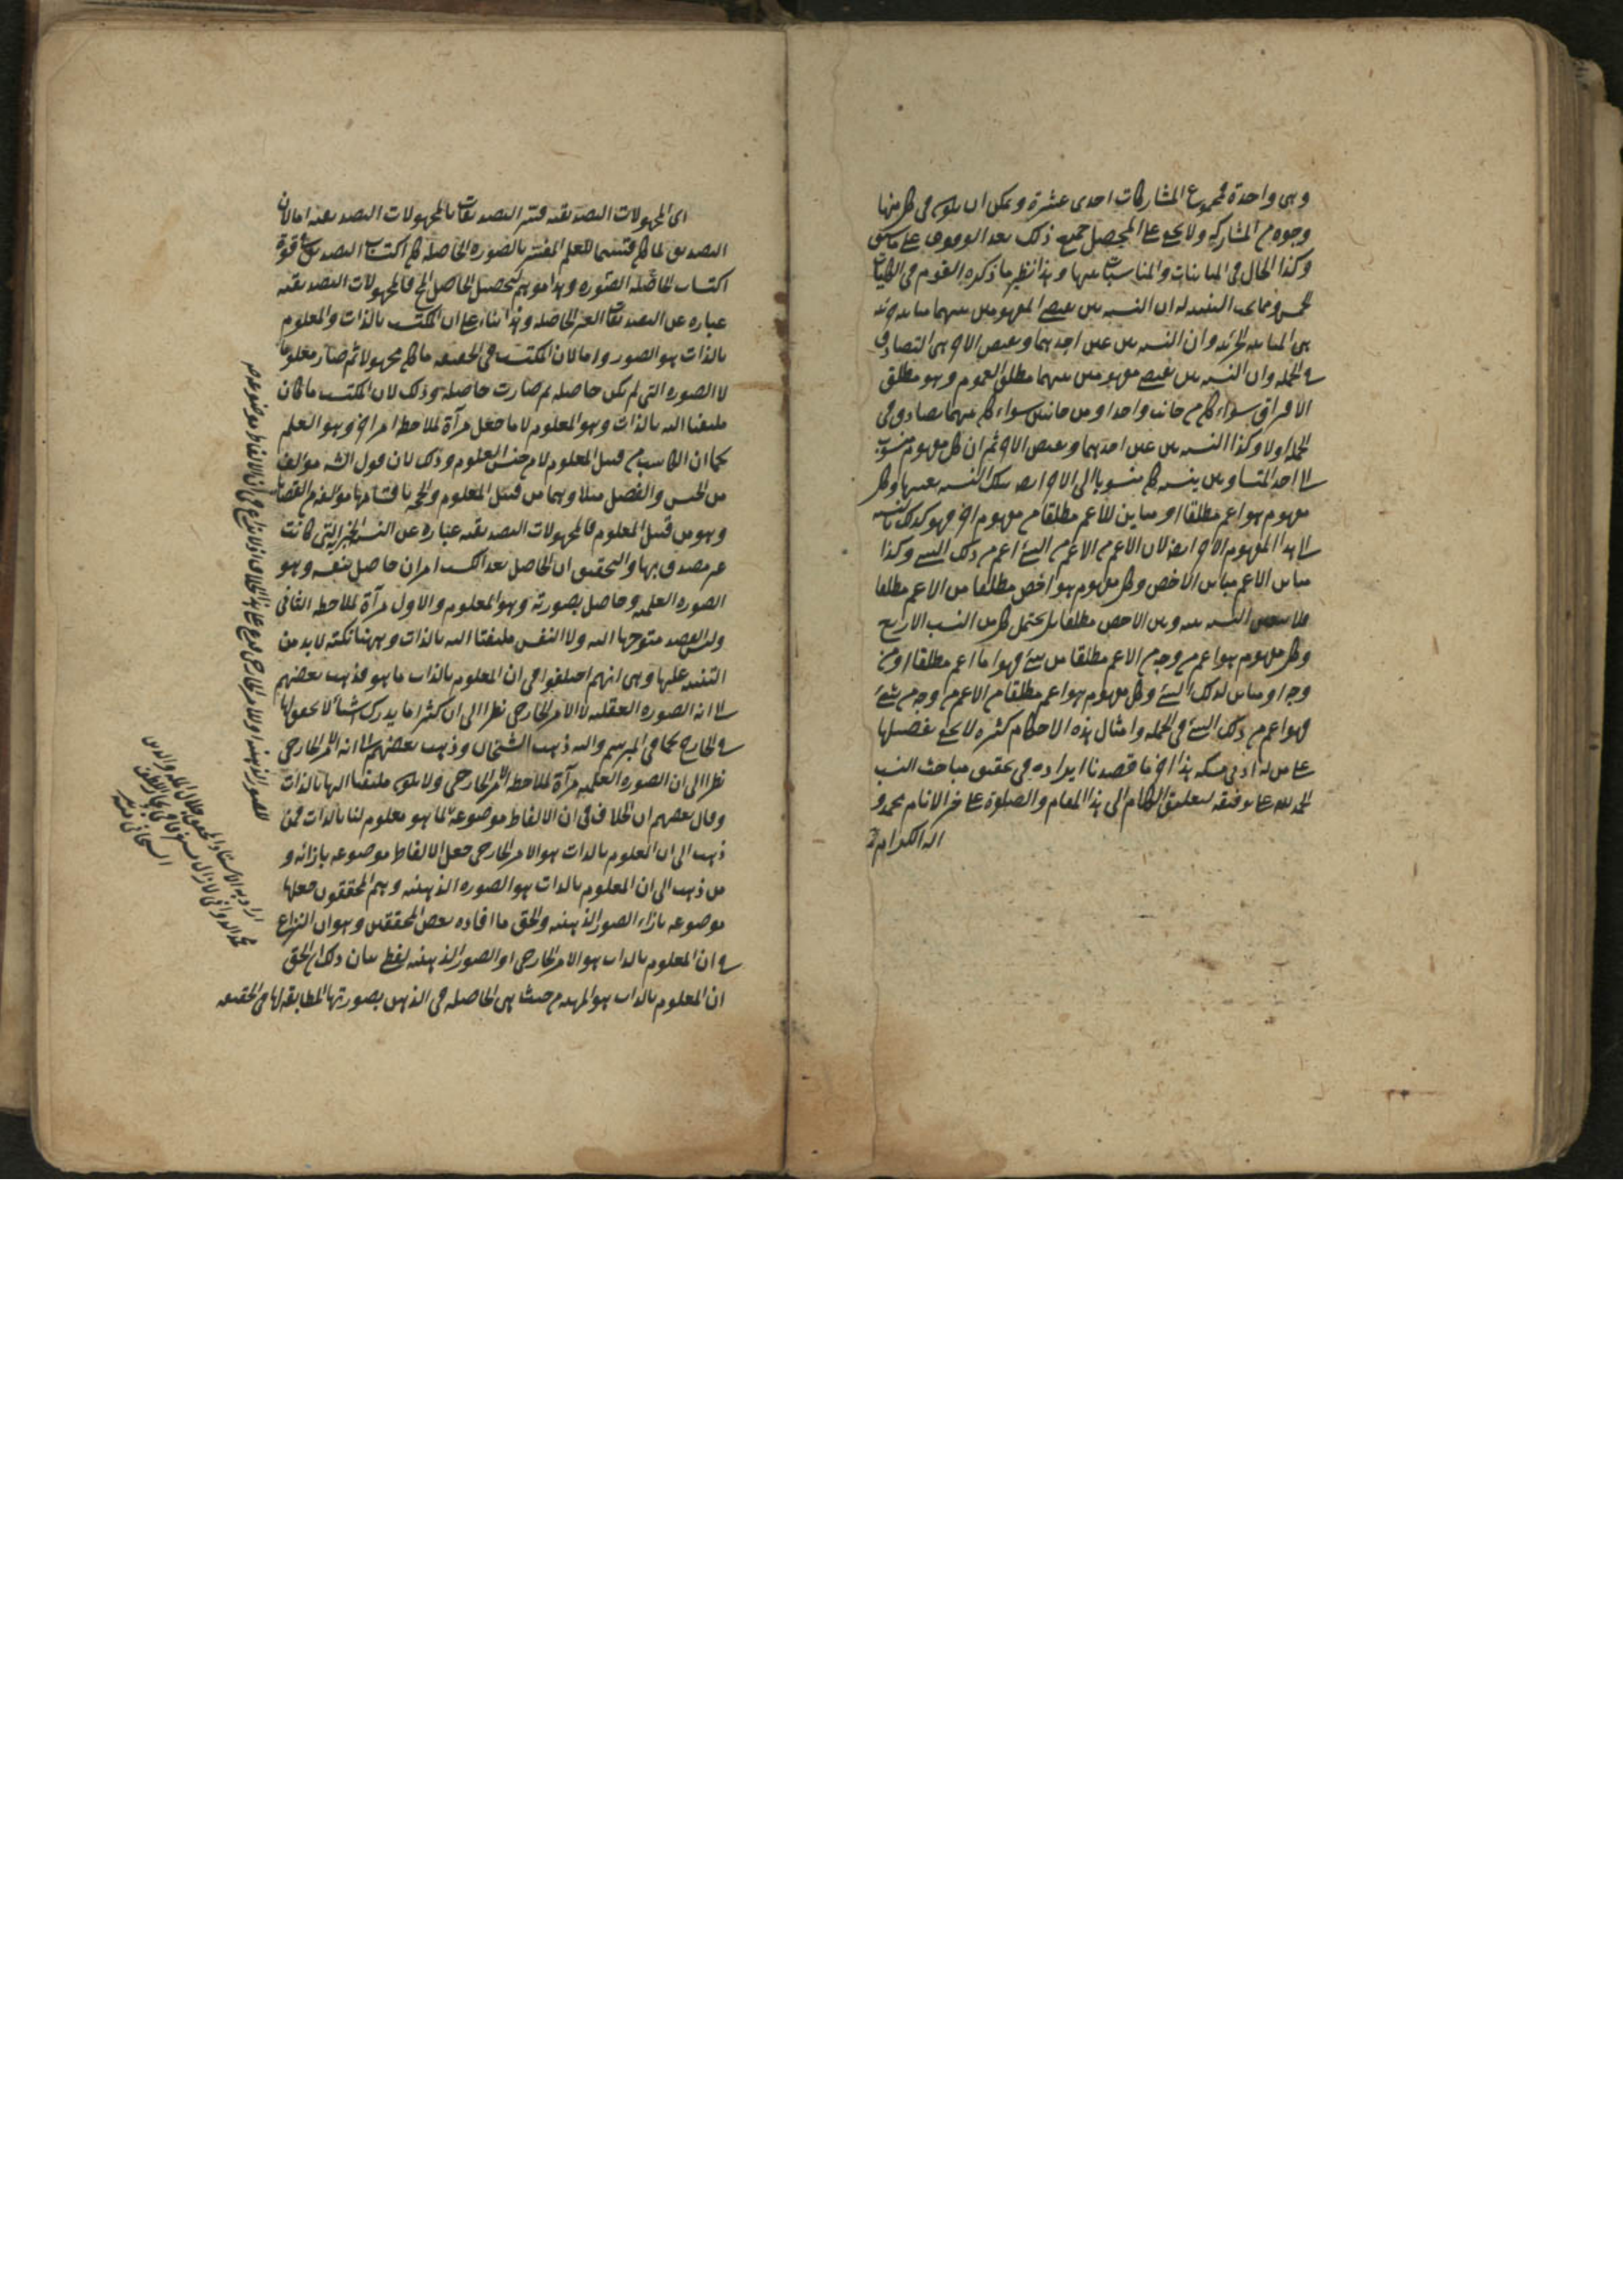 وهى واحدة فمجموع المشاركات احدى عشرة ويمكن ان يكون فى كل منها
وجوه من المشاركة ولا يخفى على المحصل جميع ذلك بعد الوقوف على ما سبق
وكذا الحال فى المباينات والمناسبات بينها وهذا نظير ما ذكره القوم فى الكليات
الخمس ومما يجب التنبيه له ان النسبه بين نقيضى المفهومين بينهما مباينة جزئيه
هى المباينه الجزئيه وان النسبه بين عين احدهما ونقيض الاخر هى التصادق
فى الجمله وان النسبه بين نقيضى مفهومين بينهما مطلق العموم وهو مطلق
الافتراق سواء كان من جانب واحد او من جانبين سواء كان بينهما تصادق فى
الجمله اولا وكذا النسبه بين عين احدهما ونقيض الاخر ثم ان كل مفهوم منسوب
الى احد المتساويين بنسبه كان منسوبا الى الاخر ايضا بتلك النسبه بعينها وكل
مفهوم هو اعم مطلقا او مباين للاعم مطلقا من مفهوم اخر فهو كذلك بالنسبه
الى هذا المفهوم الاخر ايضا لان الاعم من الاعم من الشئ اعم من ذلك الشئ وكذا
مباين الاعم مباين الاخص وكل مفهوم هو اخص مطلقا من الاعم مطلقا
فلا يتعين النسبه بينه وبين الاخص مطلقا بل يحتمل كل من النسب الاربع
وكل مفهوم هو اعم من وجه من الاعم مطلقا من شئ فهو اما اعم مطلقا او من
وجه او مباين لذلك الشئ وكل مفهوم هو اعم مطلقا من الاعم من وجه من شئ
فهو اعم من ذلك الشئ فى الجمله وامثال هذه الاحكام كثيره لا يخفى تفصيلها
على من له ادنى مسكه هذا اخر ما قصدنا ايراده فى تحقيق مباحث النسب
الحمد لله على توفيقه لتعليق الكلام الى هذا المقام والصلوة على خير الانام محمد و
اله الكرام
اى المجهولات التصديقيه فسر التصديقات بالمجهولات التصديقيه اما لان
التصديق لما كان قسيما للعلم المفسر بالصوره الحاصله كان اكتساب التصديق فى قوة
اكتساب الحاصله الصوره وهذا موهم لتحصيل الحاصل الخ فالمجهولات التصديقيه
عباره عن التصديقات الغير الحاصله وهذا بناء على ان المكتسب بالذات والمعلوم
بالذات هو الصور واما لان المكتسب فى الحقيقه ما كان مجهولا ثم صار معلوما
لا الصوره التى لم يكن حاصله ثم صارت حاصله وذلك لان المكتسب ما كان
ملتفتا اليه بالذات وهو المعلوم لا ما جعل مرآة لملاحظه امر اخر وهو العلم
كما ان الكاسب من قبيل المعلوم لا من جنس العلوم وذلك لان قول الشه مؤلف
من الجنس والفصل مثلا وهما من قبيل المعلوم والحجه باقسامها مؤلفه من القضايا
وهو من قبيل المعلوم فالمجهولات التصديقيه عباره عن النسب الخبريه التى كانت
غير مصدق بها والتحقيق ان الحاصل بعد الكسب امران حاصل بنفسه وهو
الصوره العلميه وحاصل بصورته وهو المعلوم والاول مرآة لملاحظه الثانى
وليس القصد متوجها اليه ولا النفس ملتفتا اليه بالذات وههنا نكته لا بد من
التنبيه عليها وهى انهم اختلفوا فى ان المعلوم بالذات ما هو فذهب بعضهم
الى انه الصوره العقليه لا الامر الخارجى نظرا الى ان كثيرا ما يدرك اشياء لا تحقق لها
فى الخارج كما فى المبرسم واليه ذهب الشيخان وذهب بعضهم الى انه الامر الخارجى
نظرا الى ان الصوره العلميه مرآة لملاحظه الامر الخارجى ولا يكون ملتفتا اليها بالذات
وقال بعضهم ان الخلاف فى ان الالفاظ موضوعة لما هو معلوم لنا بالذات فمن
ذهب الى ان المعلوم بالذات هو الامر الخارجى جعل الالفاظ موضوعه بازائه و
من ذهب الى ان المعلوم بالذات هو الصوره الذهنيه وهم المحققون جعلها
موضوعه بازاء الصور الذهنيه والحق ما افاده بعض المحققين وهو ان النزاع
فى ان المعلوم بالذات هو الامر الخارجى او الصور الذهنيه لفظى بيان ذلك ان الحق
ان المعلوم بالذات هو المهيه من حيث هى الحاصله فى الذهن بصورتها المطابقه لها فى الحقيقه
اراد به الاستاد المحقق جلال المله والدين
محمد الدوانى